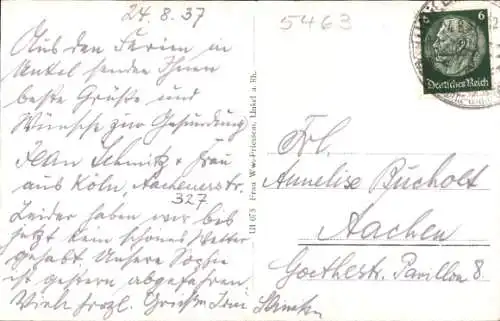 24.8.37
5463
Aus den Ferien in
Unkel senden Ihnen
beste Grüße und
Wünsche zur Gesundung
Schmitz + Frau
aus Köln, Aachenerstr.
327
Leider haben wir bis
jetzt kein schönes Wetter
gehabt. Unsere Sophie
ist gestern abgefahren.
Viele herzl. Grüße Frau Schmitz
LU 673 Frau Ww. Friessem, Unkel a. Rh.
6
Deutsches Reich
Frl.
Annelise Bucholt
Aachen
Goethestr. Pavillon 8